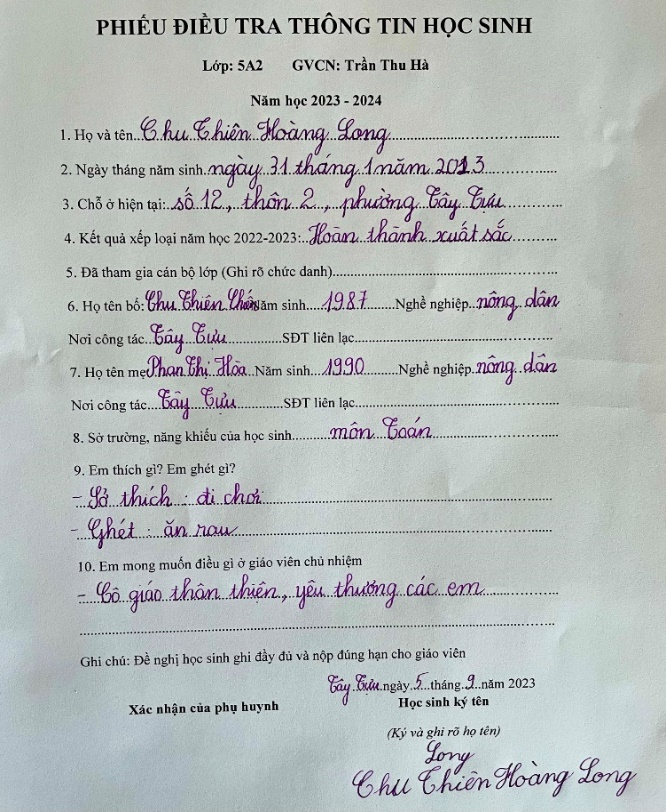 PHIẾU ĐIỀU TRA THÔNG TIN HỌC SINH
Lớp: 5A2 GVCN: Trần Thu Hà
Năm học 2023 - 2024
1. Họ và tên Chu Thiên Hoàng Long
2. Ngày tháng năm sinh ngày 31 tháng 1 năm 2013
3. Chỗ ở hiện tại: số 12, thôn 2, phường Tây Tựu
4. Kết quả xếp loại năm học 2022-2023: Hoàn thành xuất sắc
5. Đã tham gia cán bộ lớp (Ghi rõ chức danh)
6. Họ tên bố: Chu Thiên Năm sinh 1987 Nghề nghiệp nông dân
Nơi công tác Tây Tựu SĐT liên lạc
7. Họ tên mẹ Phan Thị Hòa Năm sinh 1990 Nghề nghiệp nông dân
Nơi công tác Tây Tựu SĐT liên lạc
8. Sở trường, năng khiếu của học sinh môn Toán
9. Em thích gì? Em ghét gì?
- Sở thích: đi chơi
- Ghét: ăn rau
10. Em mong muốn điều gì ở giáo viên chủ nhiệm
- Cô giáo thân thiện, yêu thương các em
Ghi chú: Đề nghị học sinh ghi đầy đủ và nộp đúng hạn cho giáo viên
Tây Tựu ngày 5 tháng 9 năm 2023
Xác nhận của phụ huynh Học sinh ký tên
(Ký và ghi rõ họ tên)
Long
Chu Thiên Hoàng Long